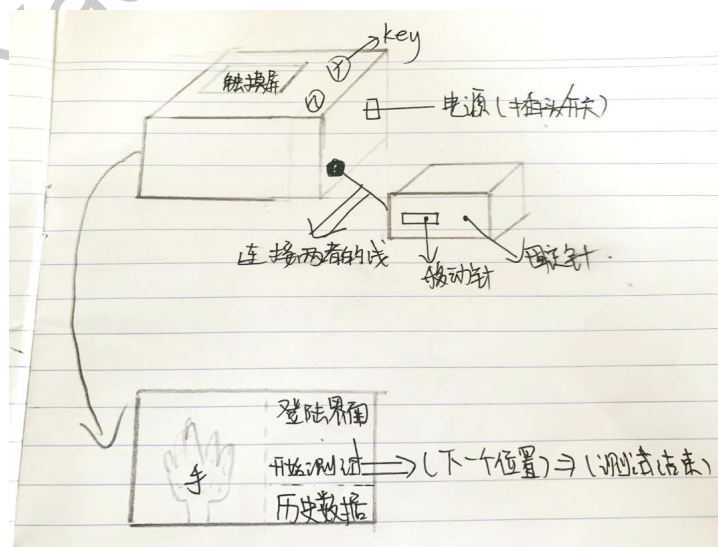 key
触摸屏
Y
N
电源(插头/开关)
连接两者的线
移动针
固定针.
登陆界面
手
开始测试 ⇒ (下一个位置) ⇒ (测试结束)
历史数据